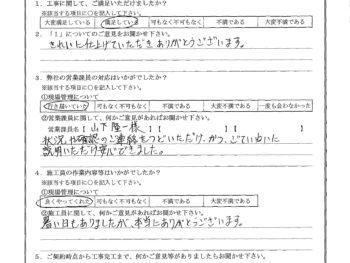 1. 工事に関して、ご満足いただけましたか?
※該当する項目に○を記入して下さい。
大変満足している 満足している 可も無く不可も無く 不満である 大変不満である
2. 「1」についてのご意見をお聞かせ下さい。
きれいに仕上げていただきありがとうございます。
3. 弊社の営業課員の対応はいかがでしたか?
※該当する項目に○を記入して下さい。
①現場管理について
行き届いていた 可も無く不可も無く 不満である 大変不満である 一度も会わなかった
②営業課員に関して、何かご意見があればお聞かせ下さい。
営業課員名【山下隆一様】【 】【 】
状況や確認のご連絡をつどいただけ、かつ、ていねいに
説明いただけ安心できました。
4. 施工員の作業内容等はいかがでしたか?
※該当する項目に○を記入して下さい。
①現場管理について
良くやってくれた 可も無く不可も無く 不満である 大変不満である
②施工員に関して、何かご意見があればお聞かせ下さい。
暑い日もありましたが、本当にありがとうございます。
5. ご契約時点から工事完工まで、何かご意見等がありましたらお聞かせ下さい。